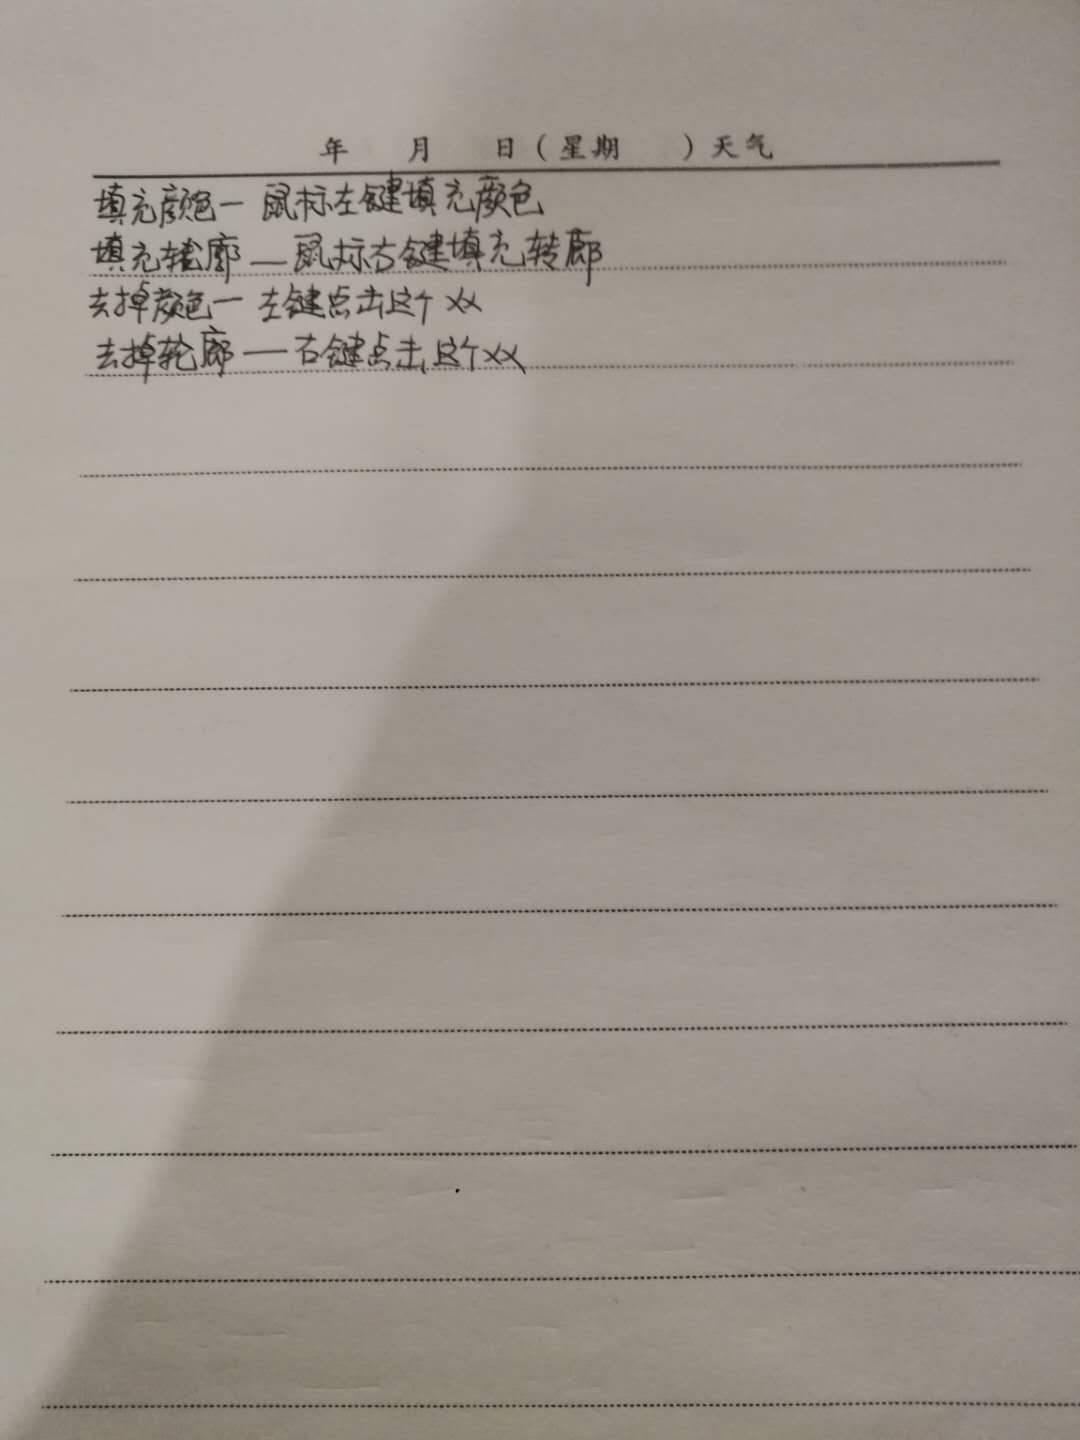 年 月 日（星期 ）天气
填充颜色一 鼠标左键填充颜色
填充轮廓 — 鼠标右键填充转廓
去掉颜色一 左键点击这个XX
去掉轮廓 — 右键点击这个XX